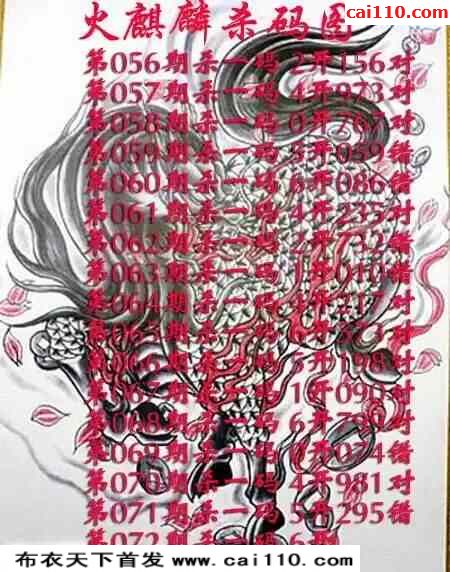 cai110.com
火麒麟杀码图
第056期杀一码 2开156对
第057期杀一码 4开973对
第058期杀一码 0开767对
第059期杀一码 5开059错
第060期杀一码 6开086错
第061期杀一码 4开235对
第062期杀一码 2开732错
第063期杀一码 1开010错
第064期杀一码 4开217对
第065期杀一码 开573
第066期杀一码 5开198对
第067期杀一码 1开090对
第068期杀一码 6开78
第069期杀一码 0开074错
第070期杀一码 4开981对
第071期杀一码 5开295错
第072期杀一码 6开
布衣天下首发 www.cai110.com